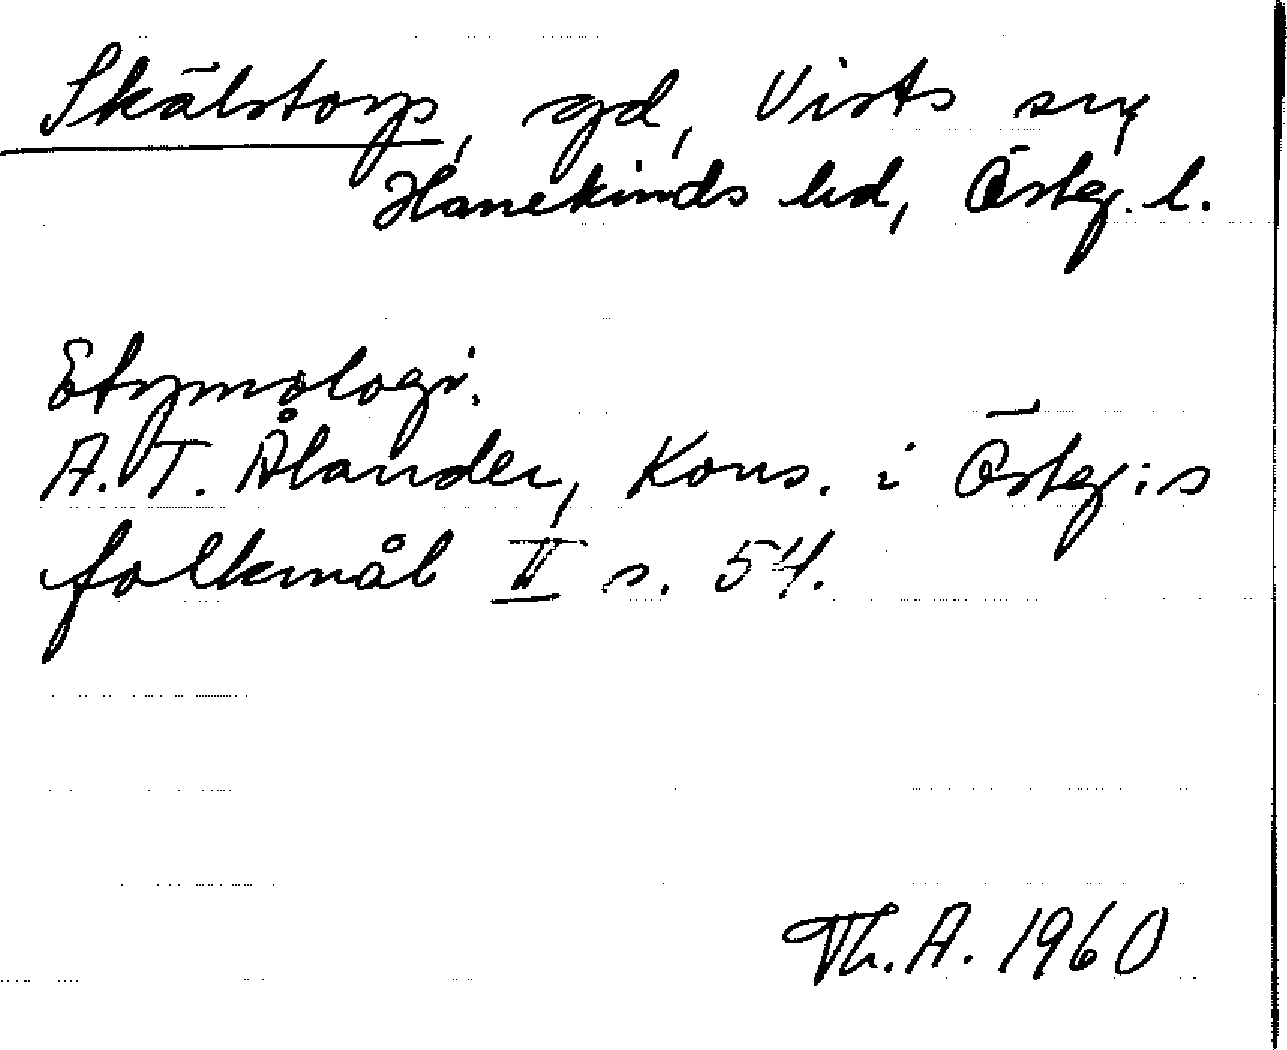 Skälstorp, gd, Vists sn,
Hanekinds hd, Östg. l.
Etymologi.
A. T. Ålander, Kons. i Östg:s
folkmål II s. 54.
Th. A. 1960